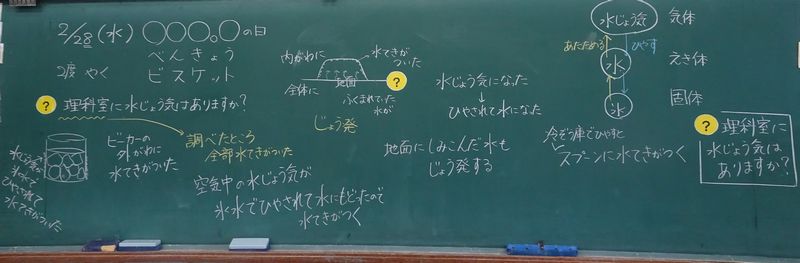 2/28(水) 〇〇〇。〇の日
べんきょう
2度 やく ビスケット
? 理科室に水じょう気はありますか?
ビーカーの
外がわに
水てきがついた
調べたところ
全部水てきがついた
空気中の水じょう気が
氷水でひやされて水にもどったので
水てきがつく
内がわに
水てきが
ついた
全体に
地面
?
ふくまれていた
水が
じょう発
水じょう気になった
↓
ひやされて水になった
地面にしみこんだ水も
じょう発する
水じょう気 気体
あたためる ひやす
水 えき体
氷 固体
冷ぞう庫でひやすと
スプーンに水てきがつく
? 理科室に
水じょう気は
ありますか?